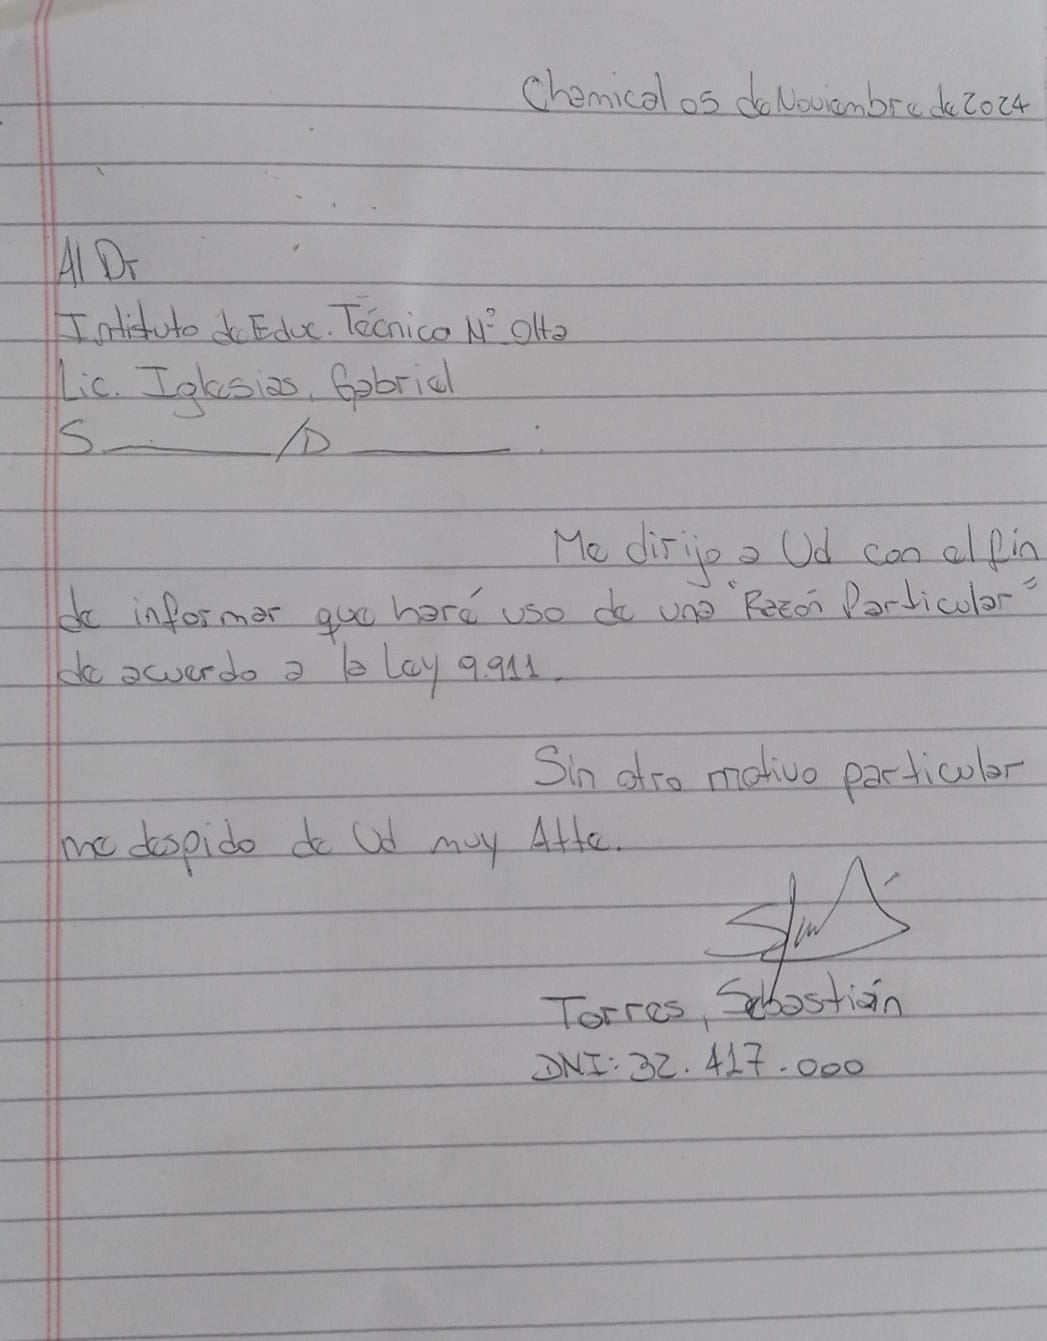 Chamical 05 de Noviembre de 2024
Al Dr
Intituto de Educ. Técnico Nº Olta
Lic. Iglesias, Gabriel
S. ________ /D ________ :
Me dirijo a Ud con el fin
de informar que haré uso de una "Razón Particular"
de acuerdo a la Ley 9.911.
Sin otro motivo particular
me despido de Ud muy Atte.
Torres, Sebastián
DNI: 32.417.000